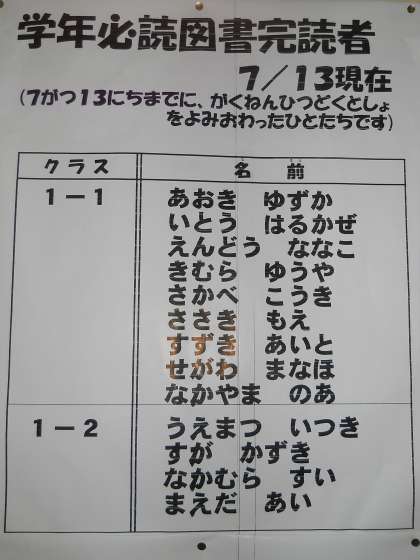 学年必読図書完読者
7/13現在
(7がつ13にちまでに、がくねんひつどくとしょ
をよみおわったひとたちです)
クラス 名前
1-1 あおき ゆずか
いとう はるかぜ
えんどう ななこ
きむら ゆうや
さかべ こうき
ささき もえ
すずき あいと
せがわ まなほ
なかやま のあ
1-2 うえまつ いつき
すが かずき
なかむら すい
まえだ あい